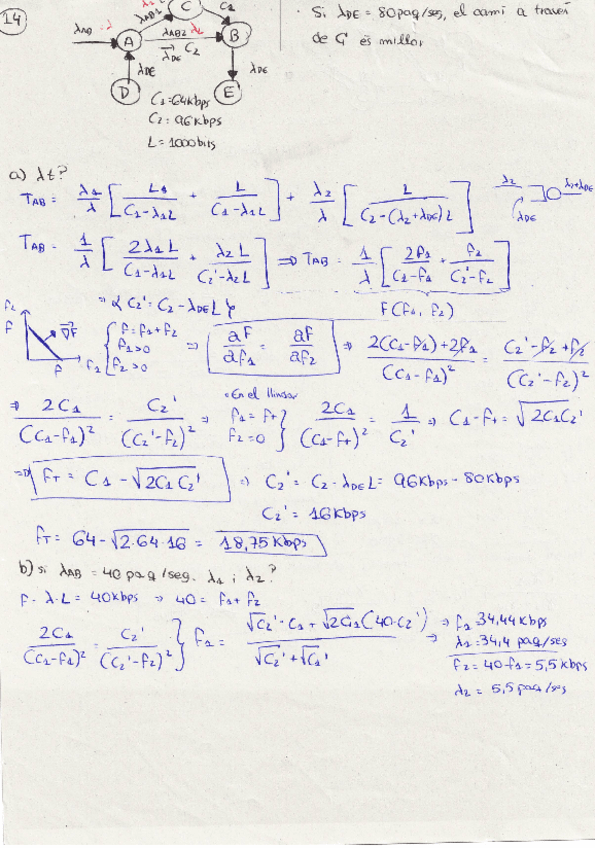 14
C
C2
λAB2
λAB
A
λAB2 λ2
B
λDE C2
· Si λDE = 80 paq/ses, el camí a través
de C és millor
λDE
λDE
D
E
C1 = 64Kbps
C2 = 96Kbps
L = 1000 bits
a) λt?
TAB = λ1/λ [ L1/(C1-λ1L) + L/(C1-λ1L) ] + λ2/λ [ L/(C2-(λ2+λDE)L) ]
λ2 λ2+λDE
λDE
TAB = 1/λ [ 2λ1L/(C1-λ1L) + λ2L/(C2'-λ2L) ] ⇒ TAB = 1/λ [ 2f1/(C1-f1) + f2/(C2'-f2) ]
C2' = C2 - λDE L
F(f1, f2)
f2 f ∇F f f1
{ f = f1+f2
f1 > 0
f2 > 0
⇒ ∂F/∂f1 = ∂F/∂f2 ⇒ (2(C1-f1)+2f1)/(C1-f1)² = (C2'-f2+f2)/(C2'-f2)²
⇒ 2C1/(C1-f1)² = C2'/(C2'-f2)² ⇒ En el llindar f1 = fT f2 = 0 } 2C1/(C1-fT)² = 1/C2' ⇒ C1-fT = √2C1C2'
⇒ fT = C1 - √2C1C2' ⇒ C2' = C2 - λDE L = 96Kbps - 80Kbps
C2' = 16Kbps
fT = 64 - √2·64·16 = 18,75 Kbps
b) si λAB = 40 paq/seg. λ1 i λ2?
f = λ·L = 40kbps ⇒ 40 = f1 + f2
2C1/(C1-f1)² = C2'/(C2'-f2)² } f1 = (√C2'·C1 + √2C1(40-C2'))/(√C2' + √C1') ⇒ f1 = 34,44 Kbps
⇒ λ1 = 34,4 paq/ses
f2 = 40-f1 = 5,5 kbps
λ2 = 5,5 paq/ses